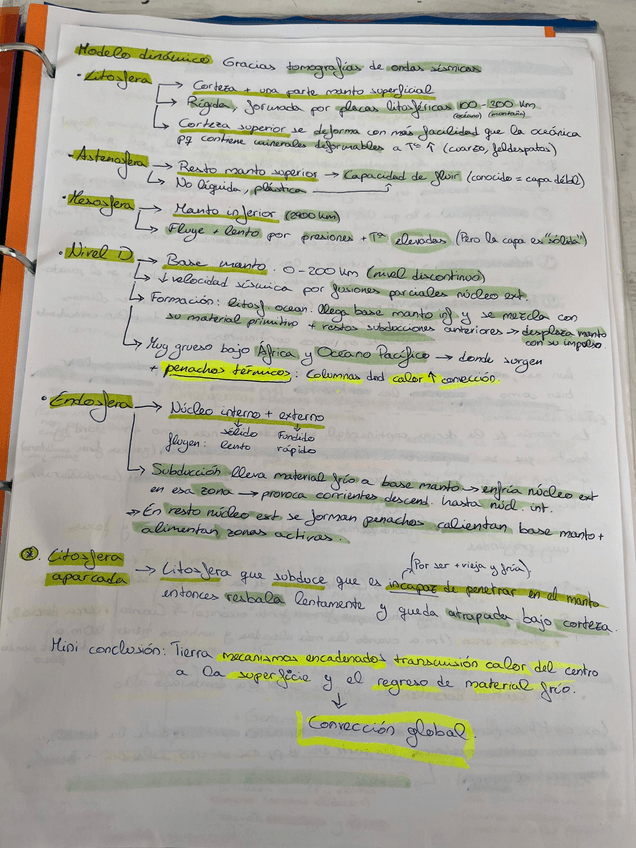 Modelo dinámico Gracias tomografías de ondas sísmicas
• Litosfera → Corteza + una parte manto superficial
→ Rígida, formada por placas litosféricas 100 - 300 km
(océano) (montaña)
→ Corteza superior se deforma con más facilidad que la oceánica
pq contiene minerales deformables a Tª ↑ (cuarzo, feldespatos)
• Astenosfera → Resto manto superior → Capacidad de fluir (conocido = capa débil)
→ No líquida, plástica
• Mesosfera → Manto inferior (2900 km)
→ Fluye + lento por presiones + Tª elevadas (Pero la capa es "sólida")
• Nivel D → Base manto. 0-200 km (nivel discontinuo)
→ ↓ velocidad sísmica por fusiones parciales núcleo ext.
→ Formación: litosf. ocean. llega base manto inf y se mezcla con
su material primitivo + restos subducciones anteriores → desplaza manto
con su impulso
→ Muy grueso bajo África y Océano Pacífico → donde surgen
+ penachos térmicos: columnas de calor ↑ convección.
• Endosfera → Núcleo interno + externo
sólido fundido
fluyen: lento rápido
→ Subducción lleva material frío a base manto → enfría núcleo ext
en esa zona → provoca corrientes descend. hasta núcl. int.
→ En resto núcleo ext se forman penachos calientan base manto +
alimentan zonas activas.
(Por ser + vieja y fría)
Litosfera aparcada → Litosfera que subduce que es incapaz de penetrar en el manto
entonces resbala lentamente y queda atrapada bajo corteza.
Mini conclusión: Tierra mecanismos encadenados transmisión calor del centro
a la superficie y el regreso de material frío.
↓
Convección global.